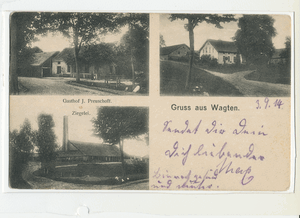 Gasthof J. Preuschoff.
Ziegelei.
Gruss aus Wagten.
3.9.14
Sendet dir Dein
Dich liebender